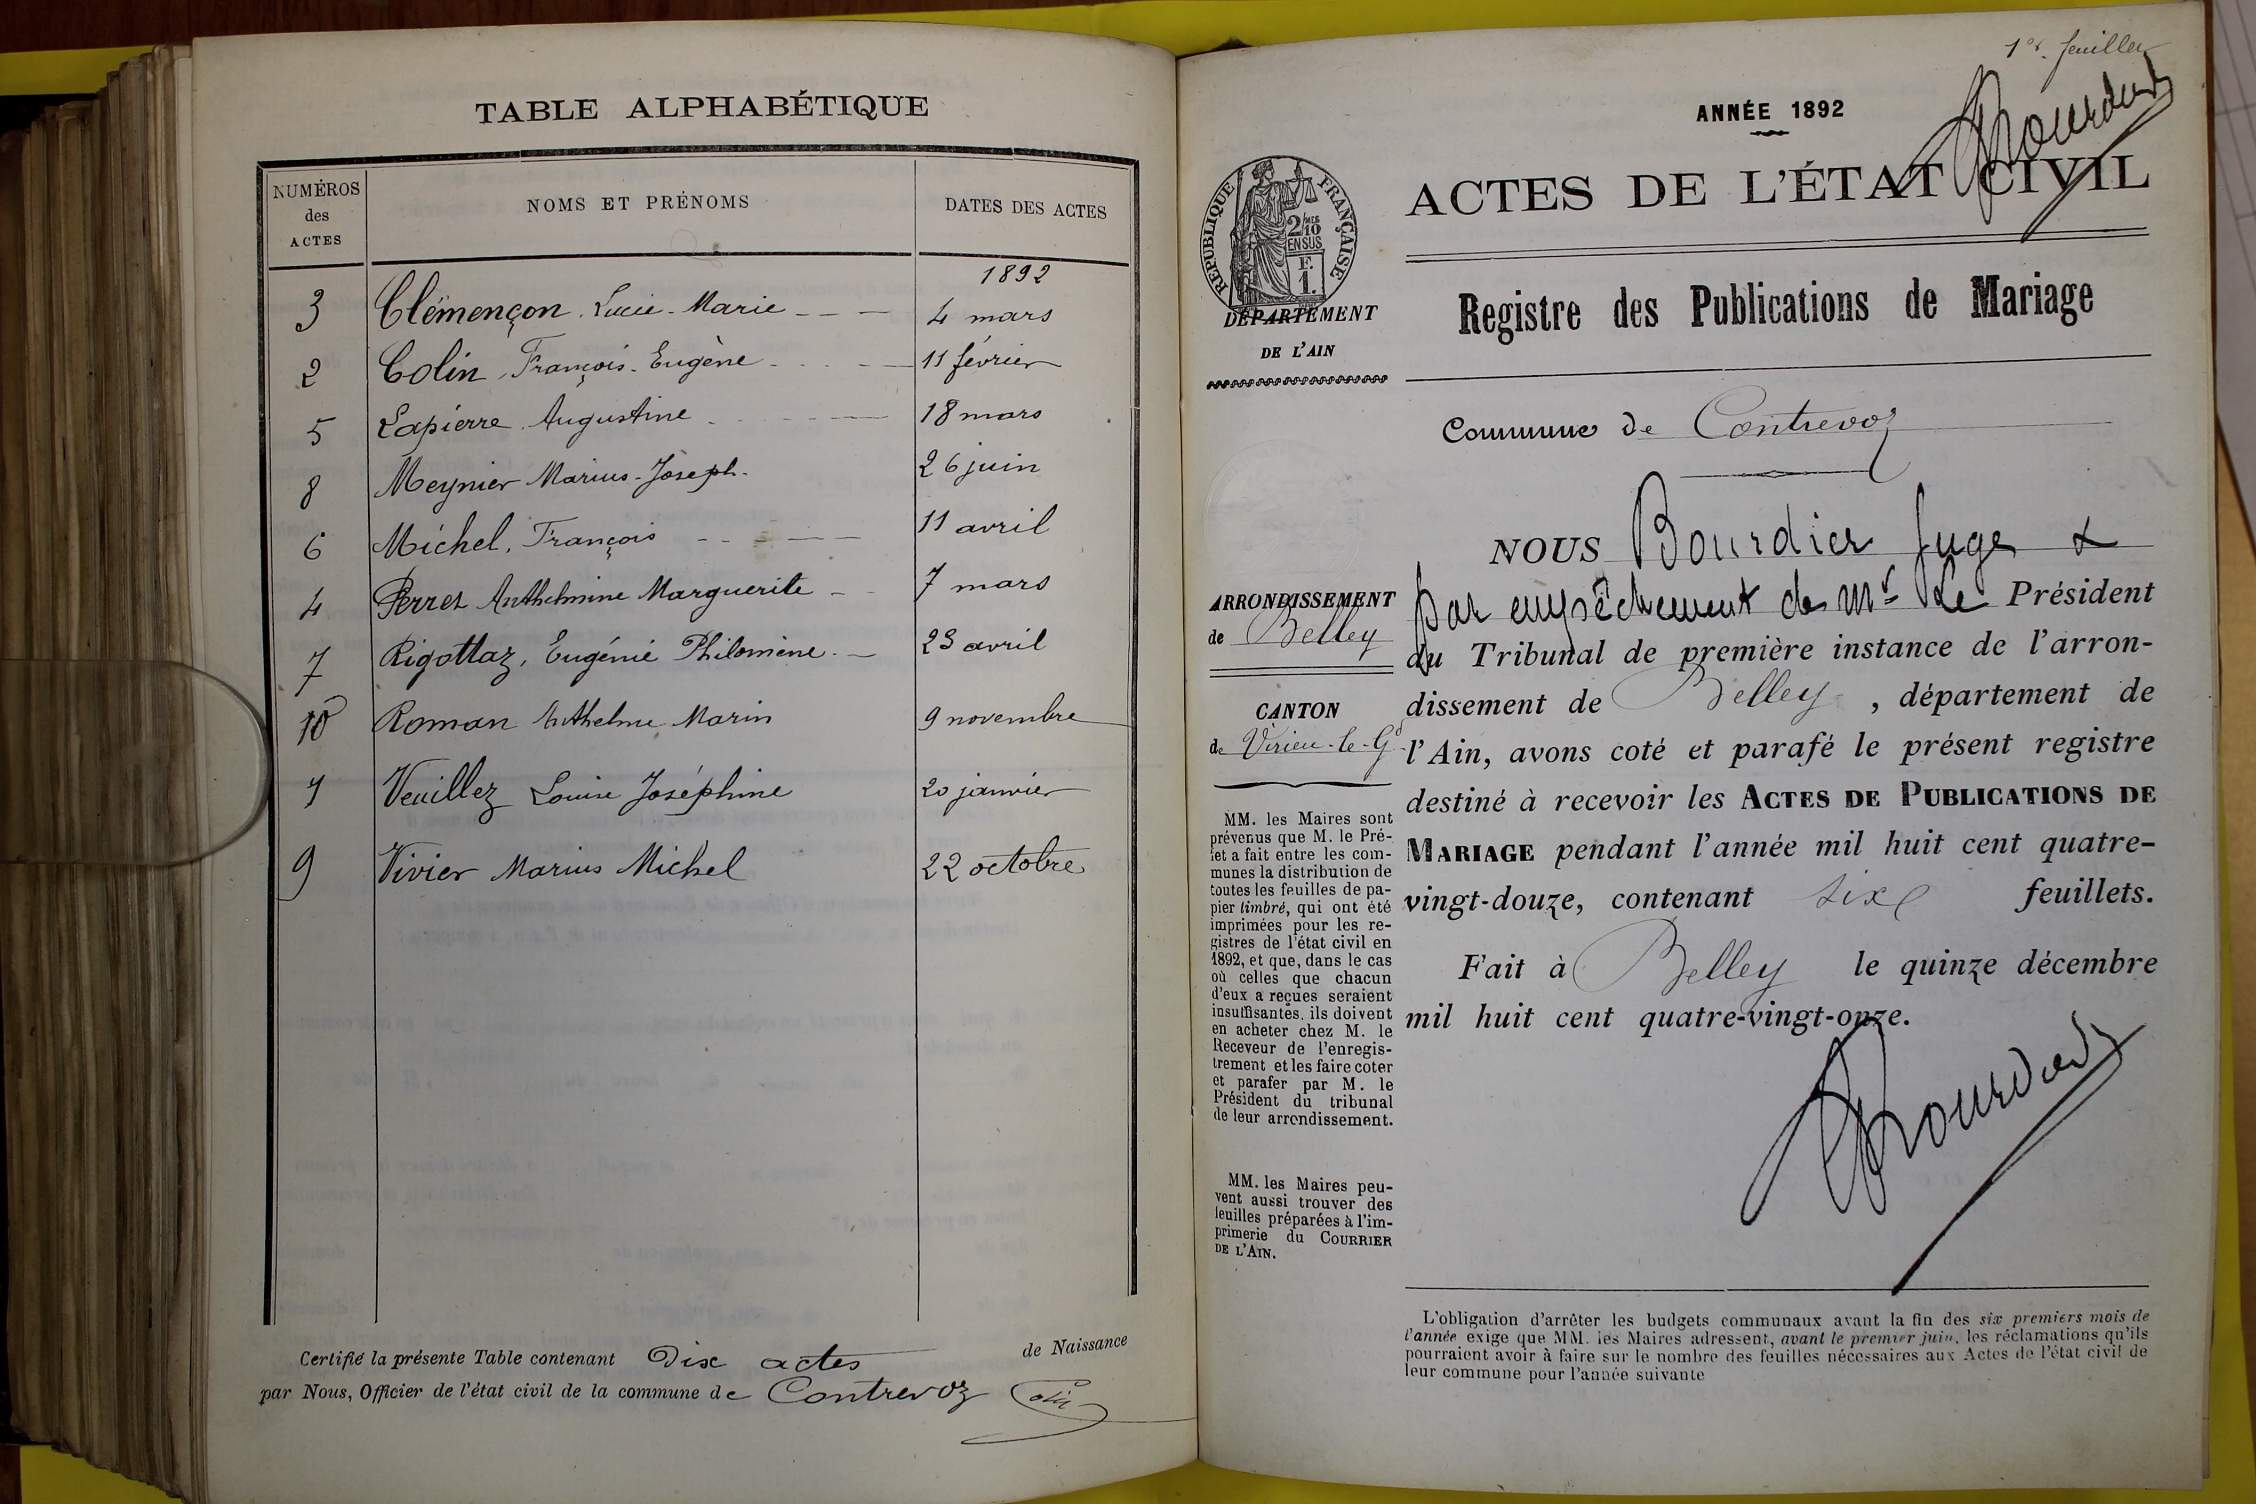 TABLE ALPHABÉTIQUE
NUMÉROS des ACTES
NOMS ET PRÉNOMS
DATES DES ACTES
1892
3 Clémençon Lucie Marie 4 mars
2 Colin, François Eugène 11 février
5 Lapierre Augustine 18 mars
8 Meynier Marius-Joseph 26 juin
6 Michel, François 11 avril
4 Perret Anthelmine Marguerite 7 mars
7 Rigottaz, Eugénie Philomène 23 avril
10 Roman Anthelme Marin 9 novembre
1 Veuillez Louise Joséphine 20 janvier
9 Vivier Marius Michel 22 octobre
Certifié la présente Table contenant Dix actes de Naissance
par Nous, Officier de l'état civil de la commune de Contrevoz
Colin
1er feuillet
Bourdier
ANNÉE 1892
ACTES DE L'ÉTAT CIVIL
RÉPUBLIQUE FRANÇAISE
2/10
MES
EN SUS
F.
1.
DÉPARTEMENT
DE L'AIN
Registre des Publications de Mariage
Commune de Contrevoz
ARRONDISSEMENT
de Belley
CANTON
de Virieu-le-Gd
MM. les Maires sont
prévenus que M. le Pré-
fet a fait entre les com-
munes la distribution de
toutes les feuilles de pa-
pier timbré, qui ont été
imprimées pour les re-
gistres de l'état civil en
1892, et que, dans le cas
où celles que chacun
d'eux a reçues seraient
insuffisantes, ils doivent
en acheter chez M. le
Receveur de l'enregis-
trement et les faire coter
et parafer par M. le
Président du tribunal
de leur arrondissement.
MM. les Maires peu-
vent aussi trouver des
feuilles préparées à l'im-
primerie du COURRIER
DE L'AIN.
NOUS Bourdier Juge
par empêchement de Mr Le Président
du Tribunal de première instance de l'arron-
dissement de Belley, département de
l'Ain, avons coté et parafé le présent registre
destiné à recevoir les ACTES DE PUBLICATIONS DE
MARIAGE pendant l'année mil huit cent quatre-
vingt-douze, contenant six feuillets.
Fait à Belley le quinze décembre
mil huit cent quatre-vingt-onze.
Bourdier
L'obligation d'arrêter les budgets communaux avant la fin des six premiers mois de
l'année exige que MM. les Maires adressent, avant le premier juin, les réclamations qu'ils
pourraient avoir à faire sur le nombre des feuilles nécessaires aux Actes de l'état civil de
leur commune pour l'année suivante